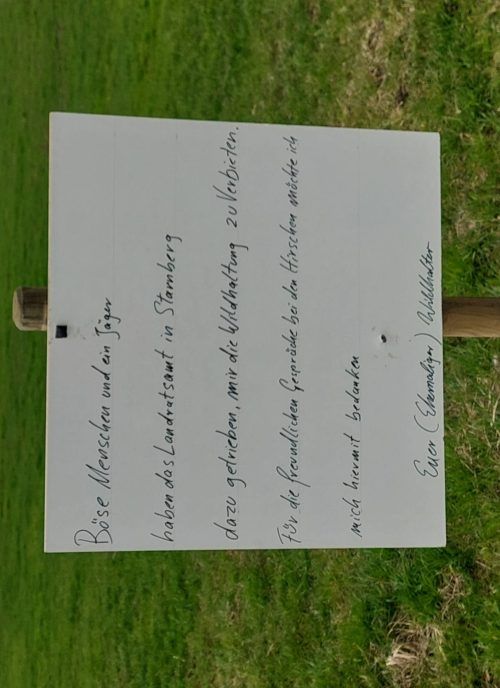 Böse Menschen und ein Jäger
haben das Landratsamt in Starnberg
dazu getrieben, mir die Wildhaltung zu Verbieten.
Für die freundlichen Gespräche bei den Hirschen möchte ich
mich hiermit bedanken
Euer (Ehemaliger) Wildhalter